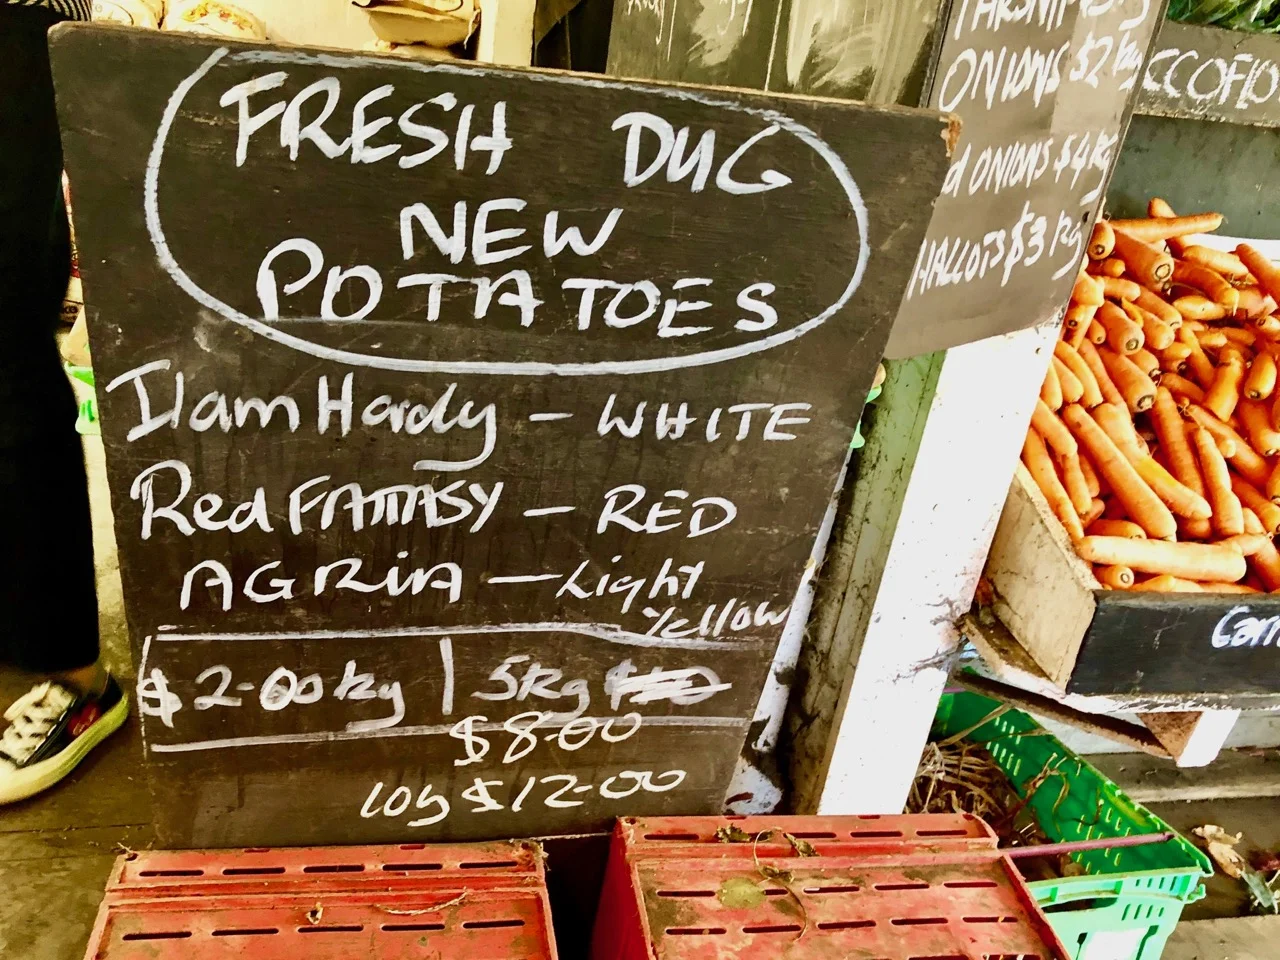 FRESH DUG
NEW
POTATOES
Ilam Hardy - WHITE
Red FANTASY - RED
AGRIA - Light
Yellow
$2-00 kg | 5kg
$8-00
10kg $12-00
ONIONS $2 kg
ONIONS $4 kg
HALLOTS $3 kg
CCOFLO
Carr